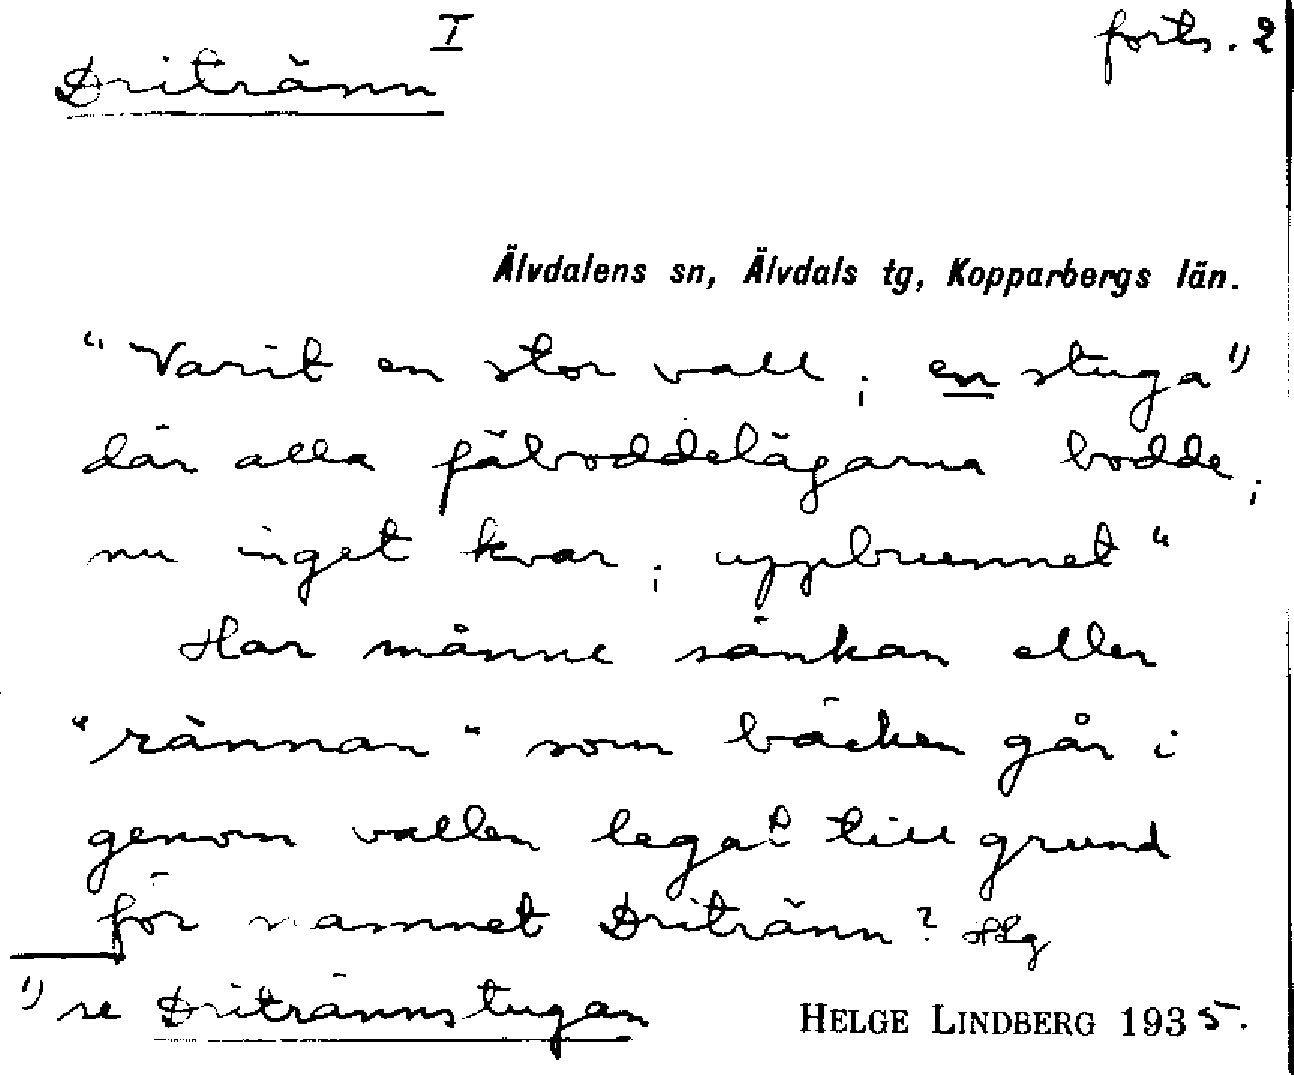 Dritränn I forts. 2
Älvdalens sn, Älvdals tg, Kopparbergs län.
"Varit en stor vall; en stuga 1)
där alla fäboddelägarna bodde;
nu inget kvar; uppbrunnet"
Har månne sänkan eller
"rännan" som bäcken går i
genom vallen legat till grund
för namnet Dritränn? HLg
1) se Dritrännstugan
HELGE LINDBERG 1935.